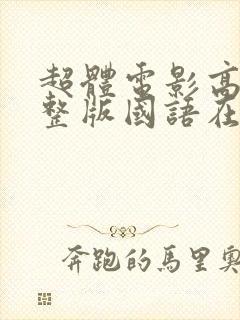 超體電影高
整版國語在
奔跑的馬里奧